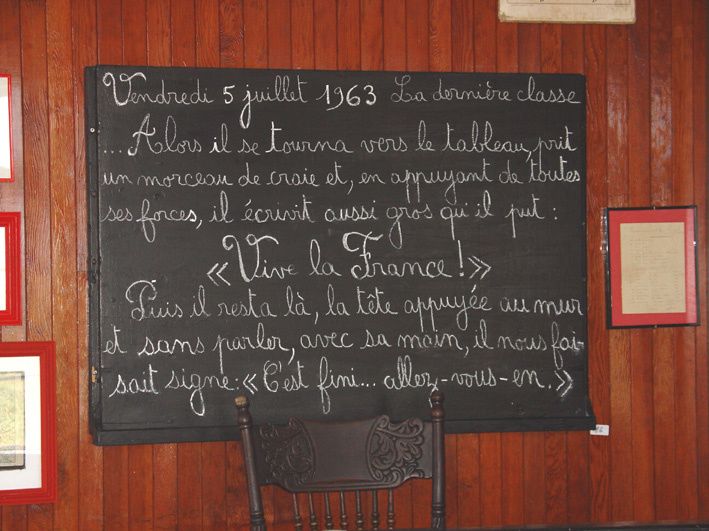 Vendredi 5 juillet 1963 La dernière classe
... Alors il se tourna vers le tableau, prit
un morceau de craie et, en appuyant de toutes
ses forces, il écrivit aussi gros qu'il put :
« Vive la France ! »
Puis il resta là, la tête appuyée au mur
et sans parler, avec sa main, il nous fai-
sait signe : « C'est fini... allez-vous-en. »